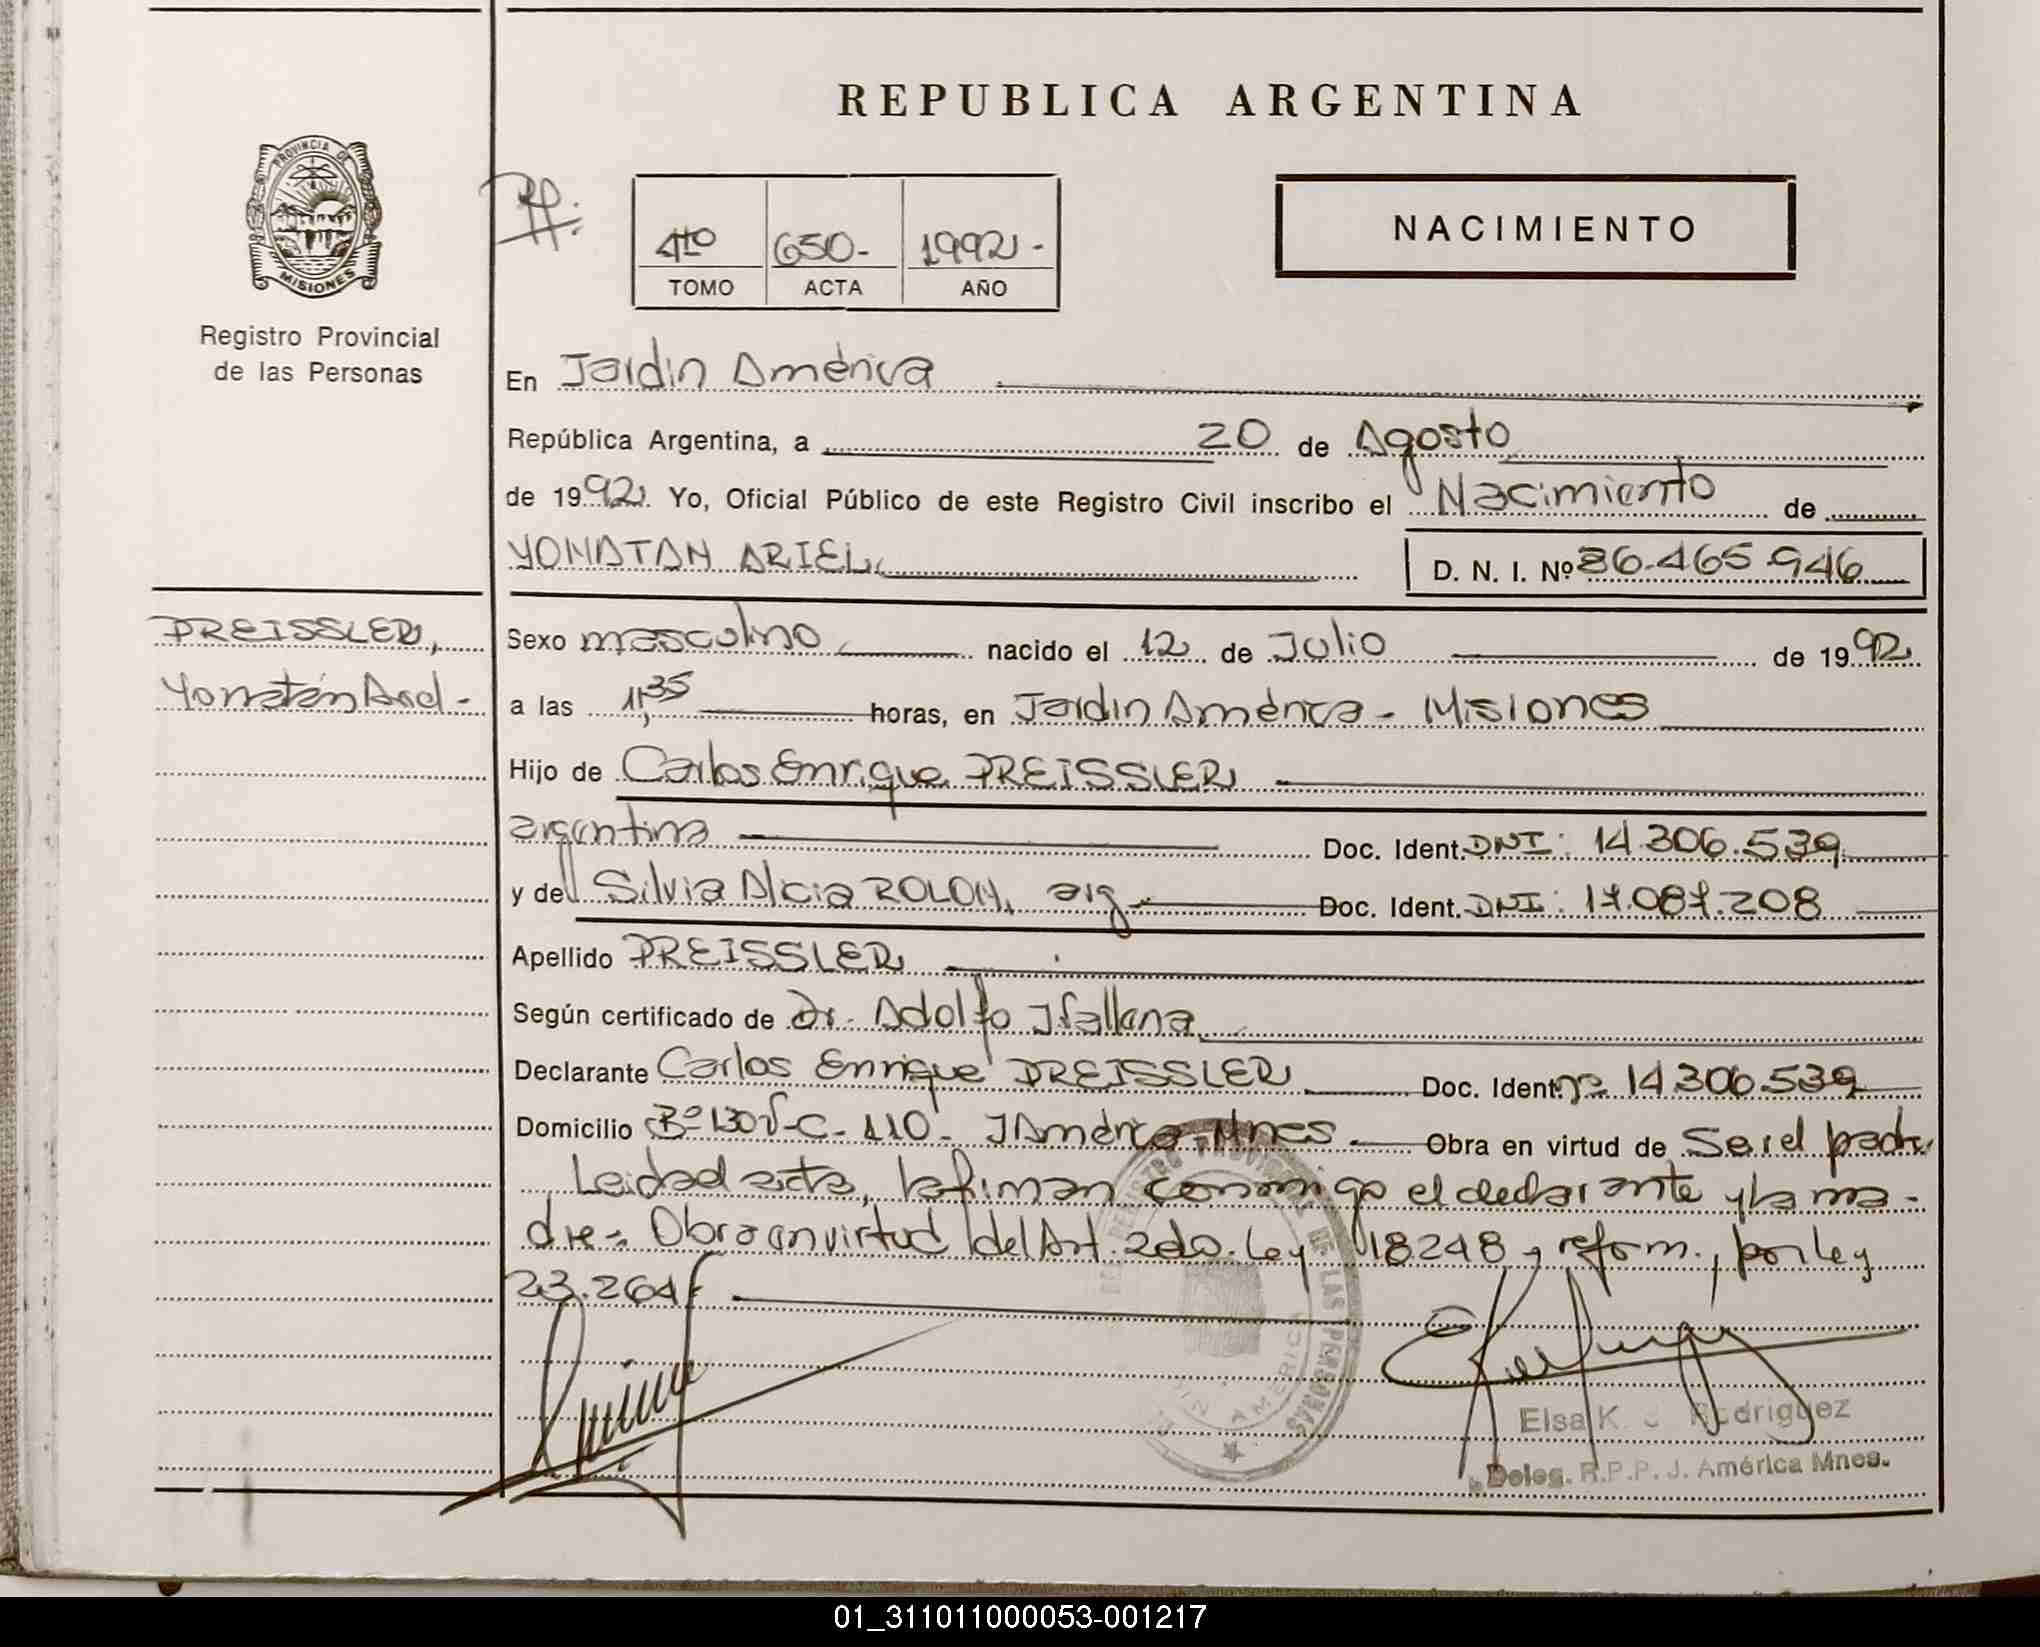 REPUBLICA ARGENTINA
PROVINCIA DE
MISIONES
Registro Provincial
de las Personas
4to 650- 1992-
TOMO ACTA AÑO
NACIMIENTO
En Jardin América
República Argentina, a 20 de Agosto
de 1992. Yo, Oficial Público de este Registro Civil inscribo el Nacimiento de
YONATAN ARIEL
D. N. I. Nº 36.465.946
PREISSLER,
Yonatán Ariel-
Sexo masculino nacido el 12 de Julio de 1992
a las 11,35 horas, en Jardin América - Misiones
Hijo de Carlos Enrique PREISSLER
argentina Doc. Ident. DNI: 14.306.539
y de Silvia Alicia ROLON, arg Doc. Ident. DNI: 17.087.208
Apellido PREISSLER
Según certificado de Dr. Adolfo
Declarante Carlos Enrique PREISSLER Doc. Ident. 14.306.539
Domicilio Bº 130 V-C-110- J América-Mnes. Obra en virtud de Ser el padre
Leida el acta, la firman conmigo el declarante y la ma-
dre-. Obra en virtud del Art. 2do. Ley 18248 y reform., por ley
23.264
REGISTRO PROVINCIAL DE LAS PERSONAS
AMERICA
Elsa K. Rodriguez
Deleg. R.P.P. J. América Mnes.
01_311011000053-001217